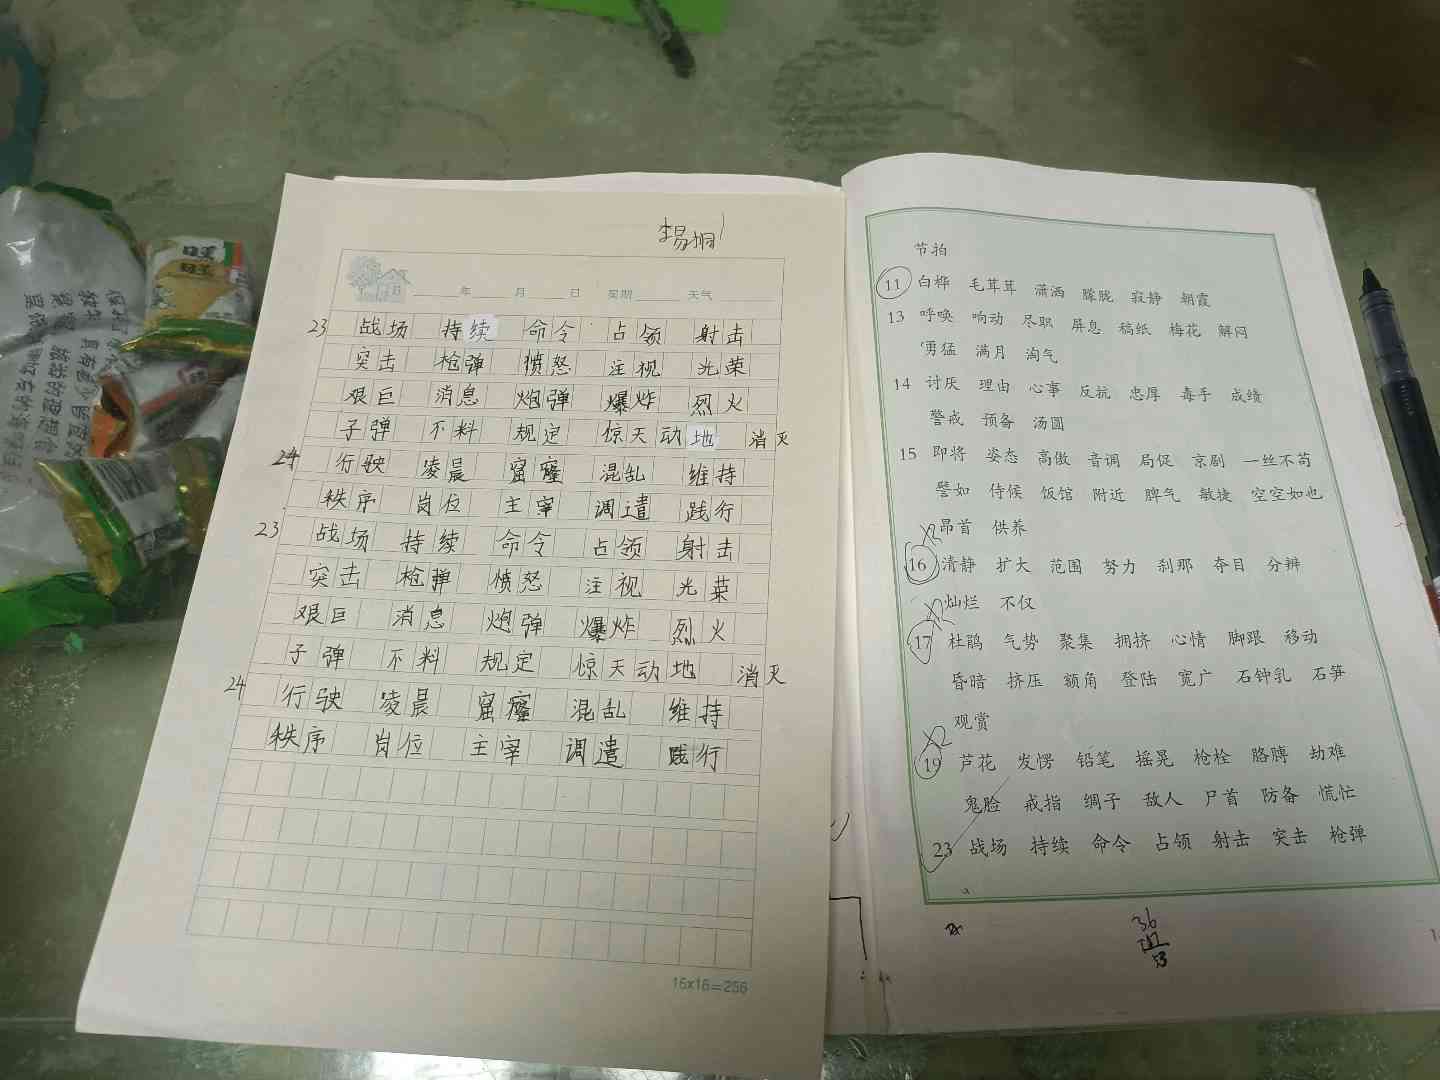 年 月 日 星期 天气
23 战场 持续 命令 占领 射击
突击 枪弹 愤怒 注视 光荣
艰巨 消息 炮弹 爆炸 烈火
子弹 不料 规定 惊天动地 消灭
24 行驶 凌晨 混乱 维持
秩序 岗位 主宰 调遣 践行
23 战场 持续 命令 占领 射击
突击 枪弹 愤怒 注视 光荣
艰巨 消息 炮弹 爆炸 烈火
子弹 不料 规定 惊天动地 消灭
24 行驶 凌晨 混乱 维持
秩序 岗位 主宰 调遣 践行
16×16=256
节拍
11 白桦 毛茸茸 潇洒 朦胧 寂静 朝霞
13 呼唤 响动 尽职 屏息 稿纸 梅花 解闷
勇猛 满月 淘气
14 讨厌 理由 心事 反抗 忠厚 毒手 成绩
警戒 预备 汤圆
15 即将 姿态 高傲 音调 局促 京剧 一丝不苟
譬如 侍候 饭馆 附近 脾气 敏捷 空空如也
昂首 供养
16 清静 扩大 范围 努力 刹那 夺目 分辨
灿烂 不仅
17 杜鹃 气势 聚集 拥挤 心情 脚跟 移动
昏暗 挤压 额角 登陆 宽广 石钟乳 石笋
观赏
19 芦花 发愣 铅笔 摇晃 枪栓 胳膊 劫难
鬼脸 戒指 绸子 敌人 尸首 防备 慌忙
23 战场 持续 命令 占领 射击 突击 枪弹
36
旺旺